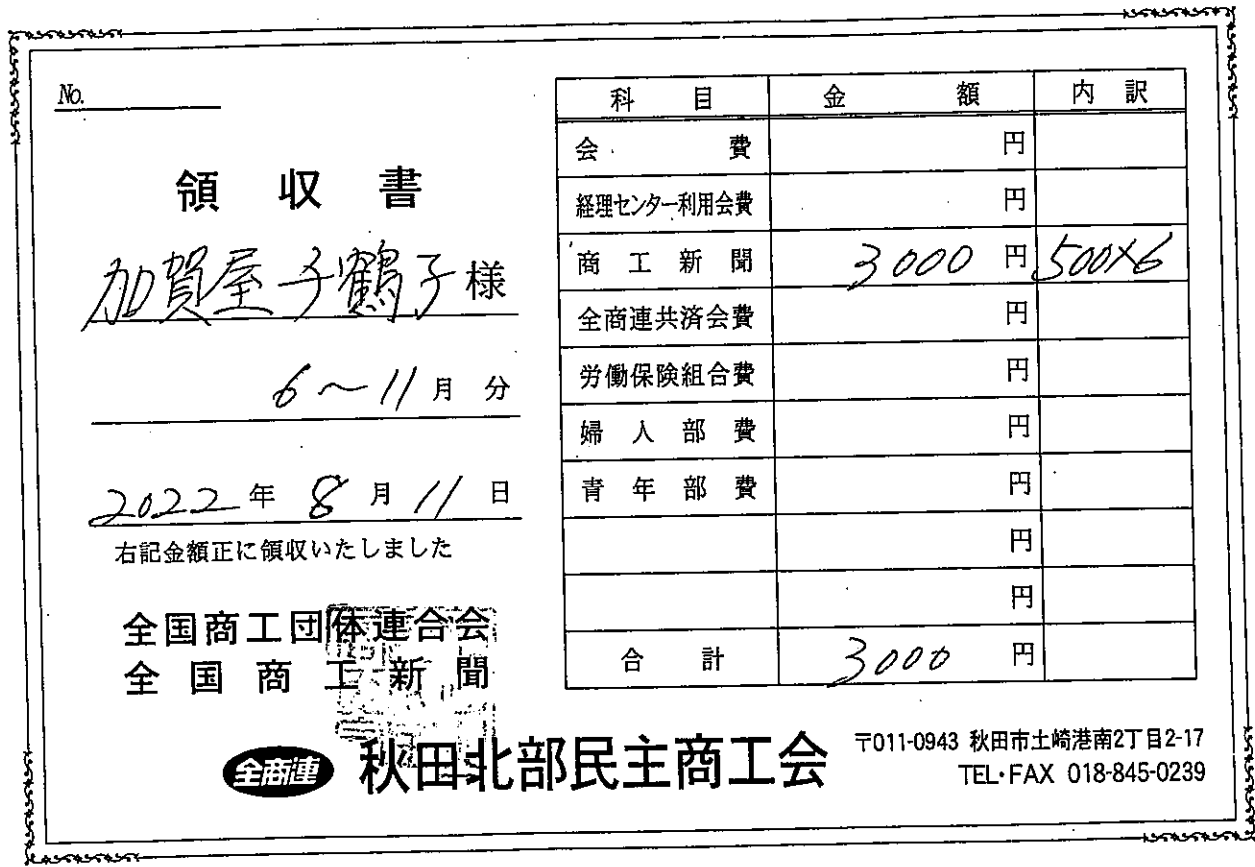 No.
領収書
加賀屋千鶴子様
6～11月分
2022年8月11日
右記金額正に領収いたしました
全国商工団体連合会
全国商工新聞
科目 金額 内訳
会費 円
経理センター利用会費 円
商工新聞 3000円 500×6
全商連共済会費 円
労働保険組合費 円
婦人部費 円
青年部費 円
円
円
合計 3000円
全商連 秋田北部民主商工会
〒011-0943 秋田市土崎港南2丁目2-17
TEL・FAX 018-845-0239